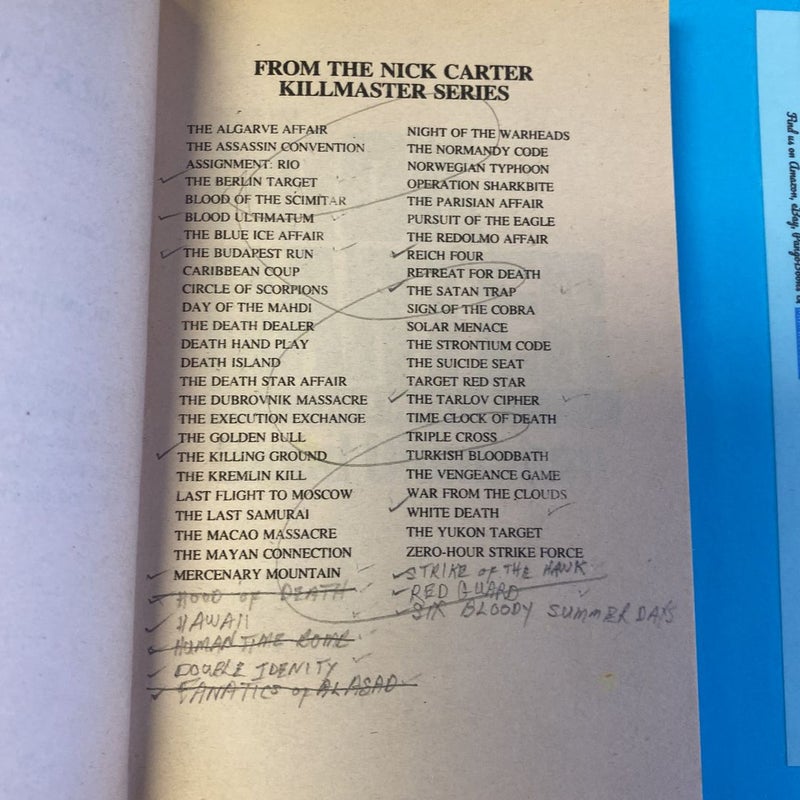 FROM THE NICK CARTER
KILLMASTER SERIES
THE ALGARVE AFFAIR
THE ASSASSIN CONVENTION
ASSIGNMENT: RIO
THE BERLIN TARGET
BLOOD OF THE SCIMITAR
BLOOD ULTIMATUM
THE BLUE ICE AFFAIR
THE BUDAPEST RUN
CARIBBEAN COUP
CIRCLE OF SCORPIONS
DAY OF THE MAHDI
THE DEATH DEALER
DEATH HAND PLAY
DEATH ISLAND
THE DEATH STAR AFFAIR
THE DUBROVNIK MASSACRE
THE EXECUTION EXCHANGE
THE GOLDEN BULL
THE KILLING GROUND
THE KREMLIN KILL
LAST FLIGHT TO MOSCOW
THE LAST SAMURAI
THE MACAO MASSACRE
THE MAYAN CONNECTION
MERCENARY MOUNTAIN
HOOD OF DEATH
HAWAII
HUMAN TIME BOMB
DOUBLE IDENITY
FANATICS OF AL ASAD
NIGHT OF THE WARHEADS
THE NORMANDY CODE
NORWEGIAN TYPHOON
OPERATION SHARKBITE
THE PARISIAN AFFAIR
PURSUIT OF THE EAGLE
THE REDOLMO AFFAIR
REICH FOUR
RETREAT FOR DEATH
THE SATAN TRAP
SIGN OF THE COBRA
SOLAR MENACE
THE STRONTIUM CODE
THE SUICIDE SEAT
TARGET RED STAR
THE TARLOV CIPHER
TIME CLOCK OF DEATH
TRIPLE CROSS
TURKISH BLOODBATH
THE VENGEANCE GAME
WAR FROM THE CLOUDS
WHITE DEATH
THE YUKON TARGET
ZERO-HOUR STRIKE FORCE
STRIKE OF THE HAWK
RED GUARD
SIX BLOODY SUMMER DAYS
Find us on Amazon, eBay, PangoBooks